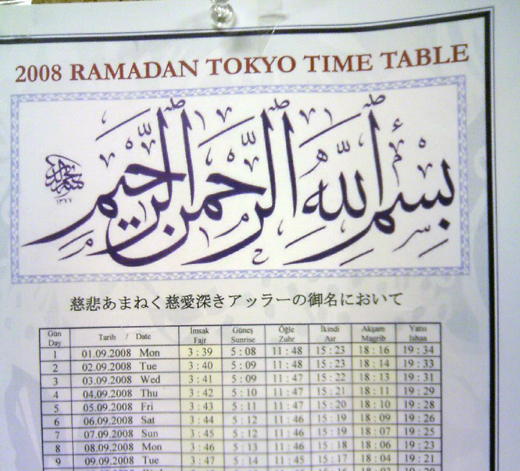 2008 RAMADAN TOKYO TIME TABLE
بسم الله الرحمن الرحيم
慈悲あまねく慈愛深きアッラーの御名において
Gün Day Tarih / Date İmsak Fajr Güneş Sunrise Öğle Zuhr İkindi Asr Akşam Magrib Yatsı Ishaa
1 01.09.2008 Mon 3 : 39 5 : 08 11 : 48 15 : 23 18 : 16 19 : 34
2 02.09.2008 Tue 3 : 40 5 : 09 11 : 48 15 : 23 18 : 14 19 : 33
3 03.09.2008 Wed 3 : 41 5 : 09 11 : 47 15 : 22 18 : 13 19 : 31
4 04.09.2008 Thu 3 : 42 5 : 10 11 : 47 15 : 21 18 : 11 19 : 29
5 05.09.2008 Fri 3 : 43 5 : 11 11 : 47 15 : 20 18 : 10 19 : 28
6 06.09.2008 Sat 3 : 44 5 : 12 11 : 46 15 : 19 18 : 09 19 : 26
7 07.09.2008 Sun 3 : 45 5 : 12 11 : 46 15 : 19 18 : 07 19 : 25
8 08.09.2008 Mon 3 : 46 5 : 13 11 : 46 15 : 18 18 : 06 19 : 23
9 09.09.2008 Tue 3 : 47 5 : 14 11 : 45 15 : 17 18 : 04 19 : 21